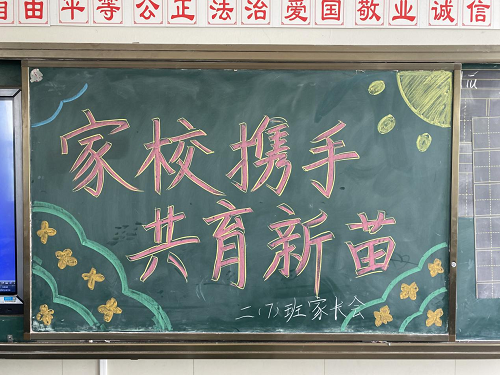 自由 平等 公正 法治 爱国 敬业 诚信
家校携手
共育新苗
二(7)班家长会